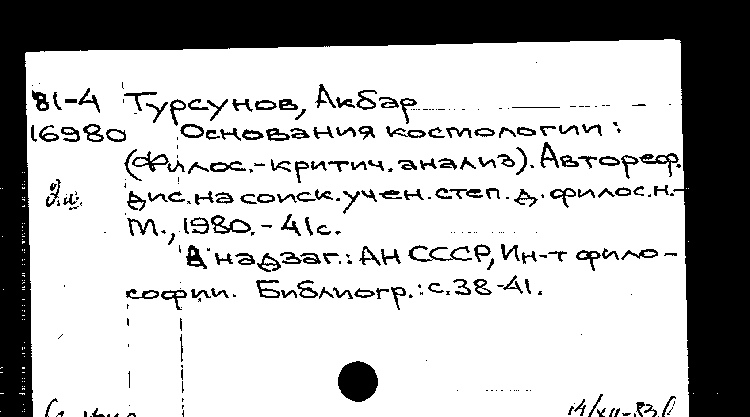 81-4 Турсунов, Акбар
16980 Основания космологии:
(Филос.-критич. анализ). Автореф.
дис. на соиск. учен. степ. д. филос. н.-
М., 1980.- 41с.
В надзаг.: АН СССР, Ин-т фило-
софии. Библиогр.: с. 38-41.
14/XII-83